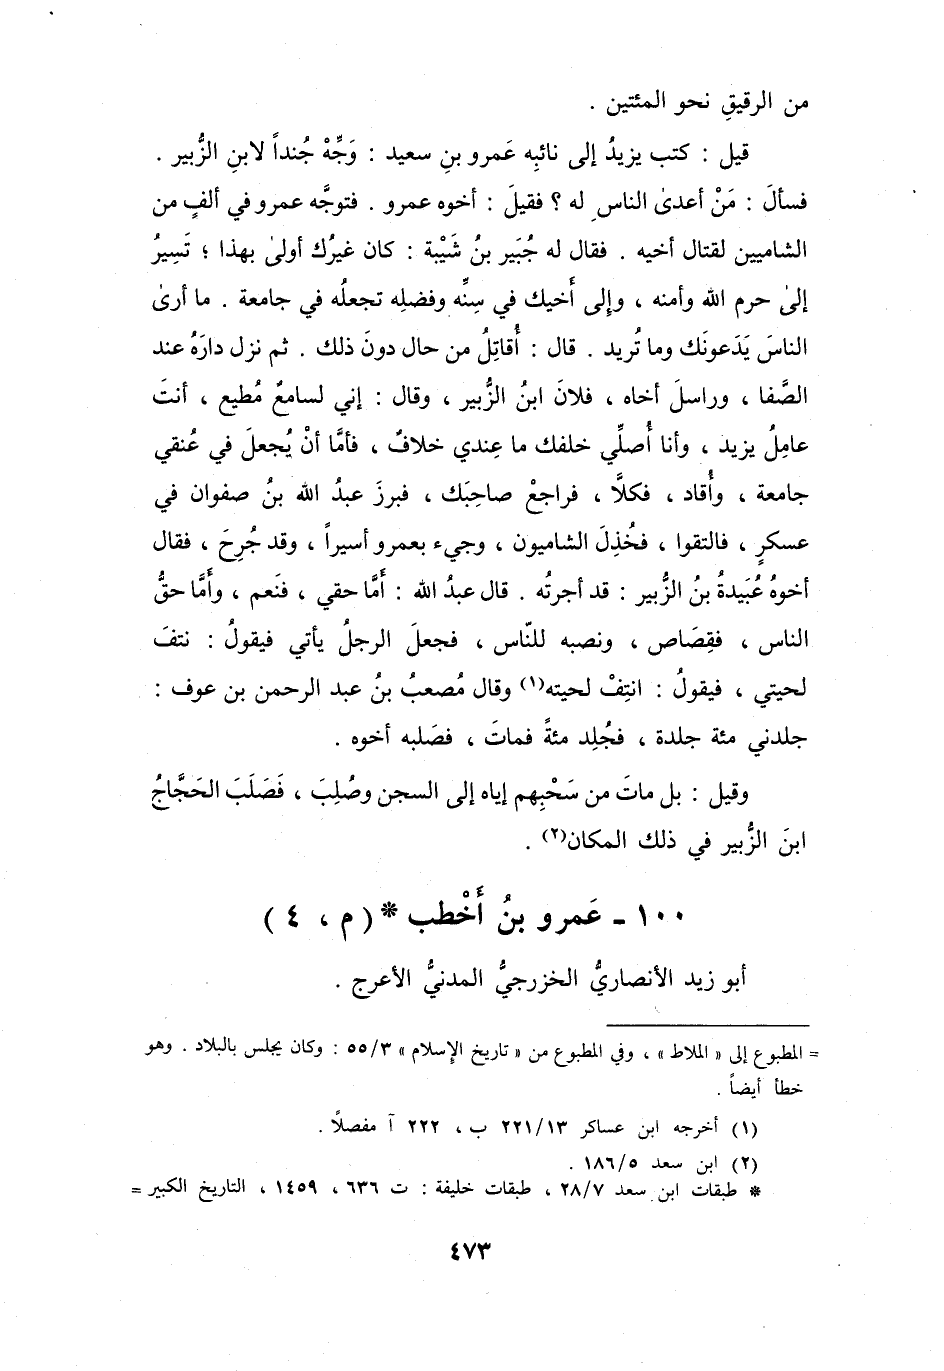 من الرقيقِ نحو المئتين .
قيل : كتب يزيدُ إلى نائبِه عَمرو بنِ سعيد : وَجِّهْ جُنداً لابنِ الزُّبير .
فسألَ : مَنْ أعدىٰ الناسِ له ؟ فقيلَ : أخوه عمرو . فتوجَّه عمرو في ألفٍ من
الشاميين لقتال أخيه . فقال له جُبَير بنُ شَيْبة : كان غيرُك أولىٰ بهذا ؛ تَسِيرُ
إلىٰ حرم الله وأمنه ، وإلى أَخيك في سِنِّه وفضلِه تجعلُه في جامعة . ما أرىٰ
الناسَ يَدَعونَك وما تُريد . قال : أُقاتِلُ من حال دونَ ذلك . ثم نزل دارَهُ عند
الصَّفا ، وراسلَ أخاه ، فلانَ ابنُ الزُّبير ، وقال : إني لسامعٌ مُطيع ، أنتَ
عامِلُ يزيد ، وأنا أُصلِّي خلفك ما عِندي خلافٌ ، فأمَّا أنْ يُجعلَ في عُنقي
جامعة ، وأُقاد ، فكلَّا ، فراجعْ صاحِبَك ، فبرزَ عبدُ الله بنُ صفوان في
عسكرٍ ، فالتقوا ، فخُذِلَ الشاميون ، وجيء بعمرو أسيراً ، وقد جُرِحَ ، فقال
أخوهُ عُبَيدةُ بنُ الزُّبير : قد أجرتُه . قال عبدُ الله : أَمَّا حقي ، فنَعم ، وأَمَّا حقُّ
الناس ، فقِصَاص ، ونصبه للنّاس ، فجعلَ الرجلُ يأتي فيقولُ : نتفَ
لحيتي ، فيقولُ : انتِفْ لحيته(١) وقال مُصعبُ بنُ عبد الرحمن بن عوف :
جلدني مئة جلدة ، فجُلِد مئةً فماتَ ، فصَلبه أخوه .
وقيل : بل ماتَ من سَحْبِهم إياه إلى السجن وصُلِبَ ، فَصَلَبَ الحَجَّاجُ
ابنَ الزُّبير في ذلك المكان(٢) .
١٠٠ - عَمرو بنُ أَخْطب * ( م ، ٤ )
أبو زيد الأنصاريُّ الخزرجيُّ المدنيُّ الأعرج .
= المطبوع إلى « الملاط » ، وفي المطبوع من « تاريخ الإسلام » ٥٥/٣ : وكان يجلس بالبلاد . وهو
خطأ أيضاً .
(١) أخرجه ابن عساكر ٢٢١/١٣ ب ، ٢٢٢ آ مفصلاً .
(٢) ابن سعد ١٨٦/٥ .
* طبقات ابن سعد ٢٨/٧ ، طبقات خليفة : ت ٦٣٦ ، ١٤٥٩ ، التاريخ الكبير =
٤٧٣